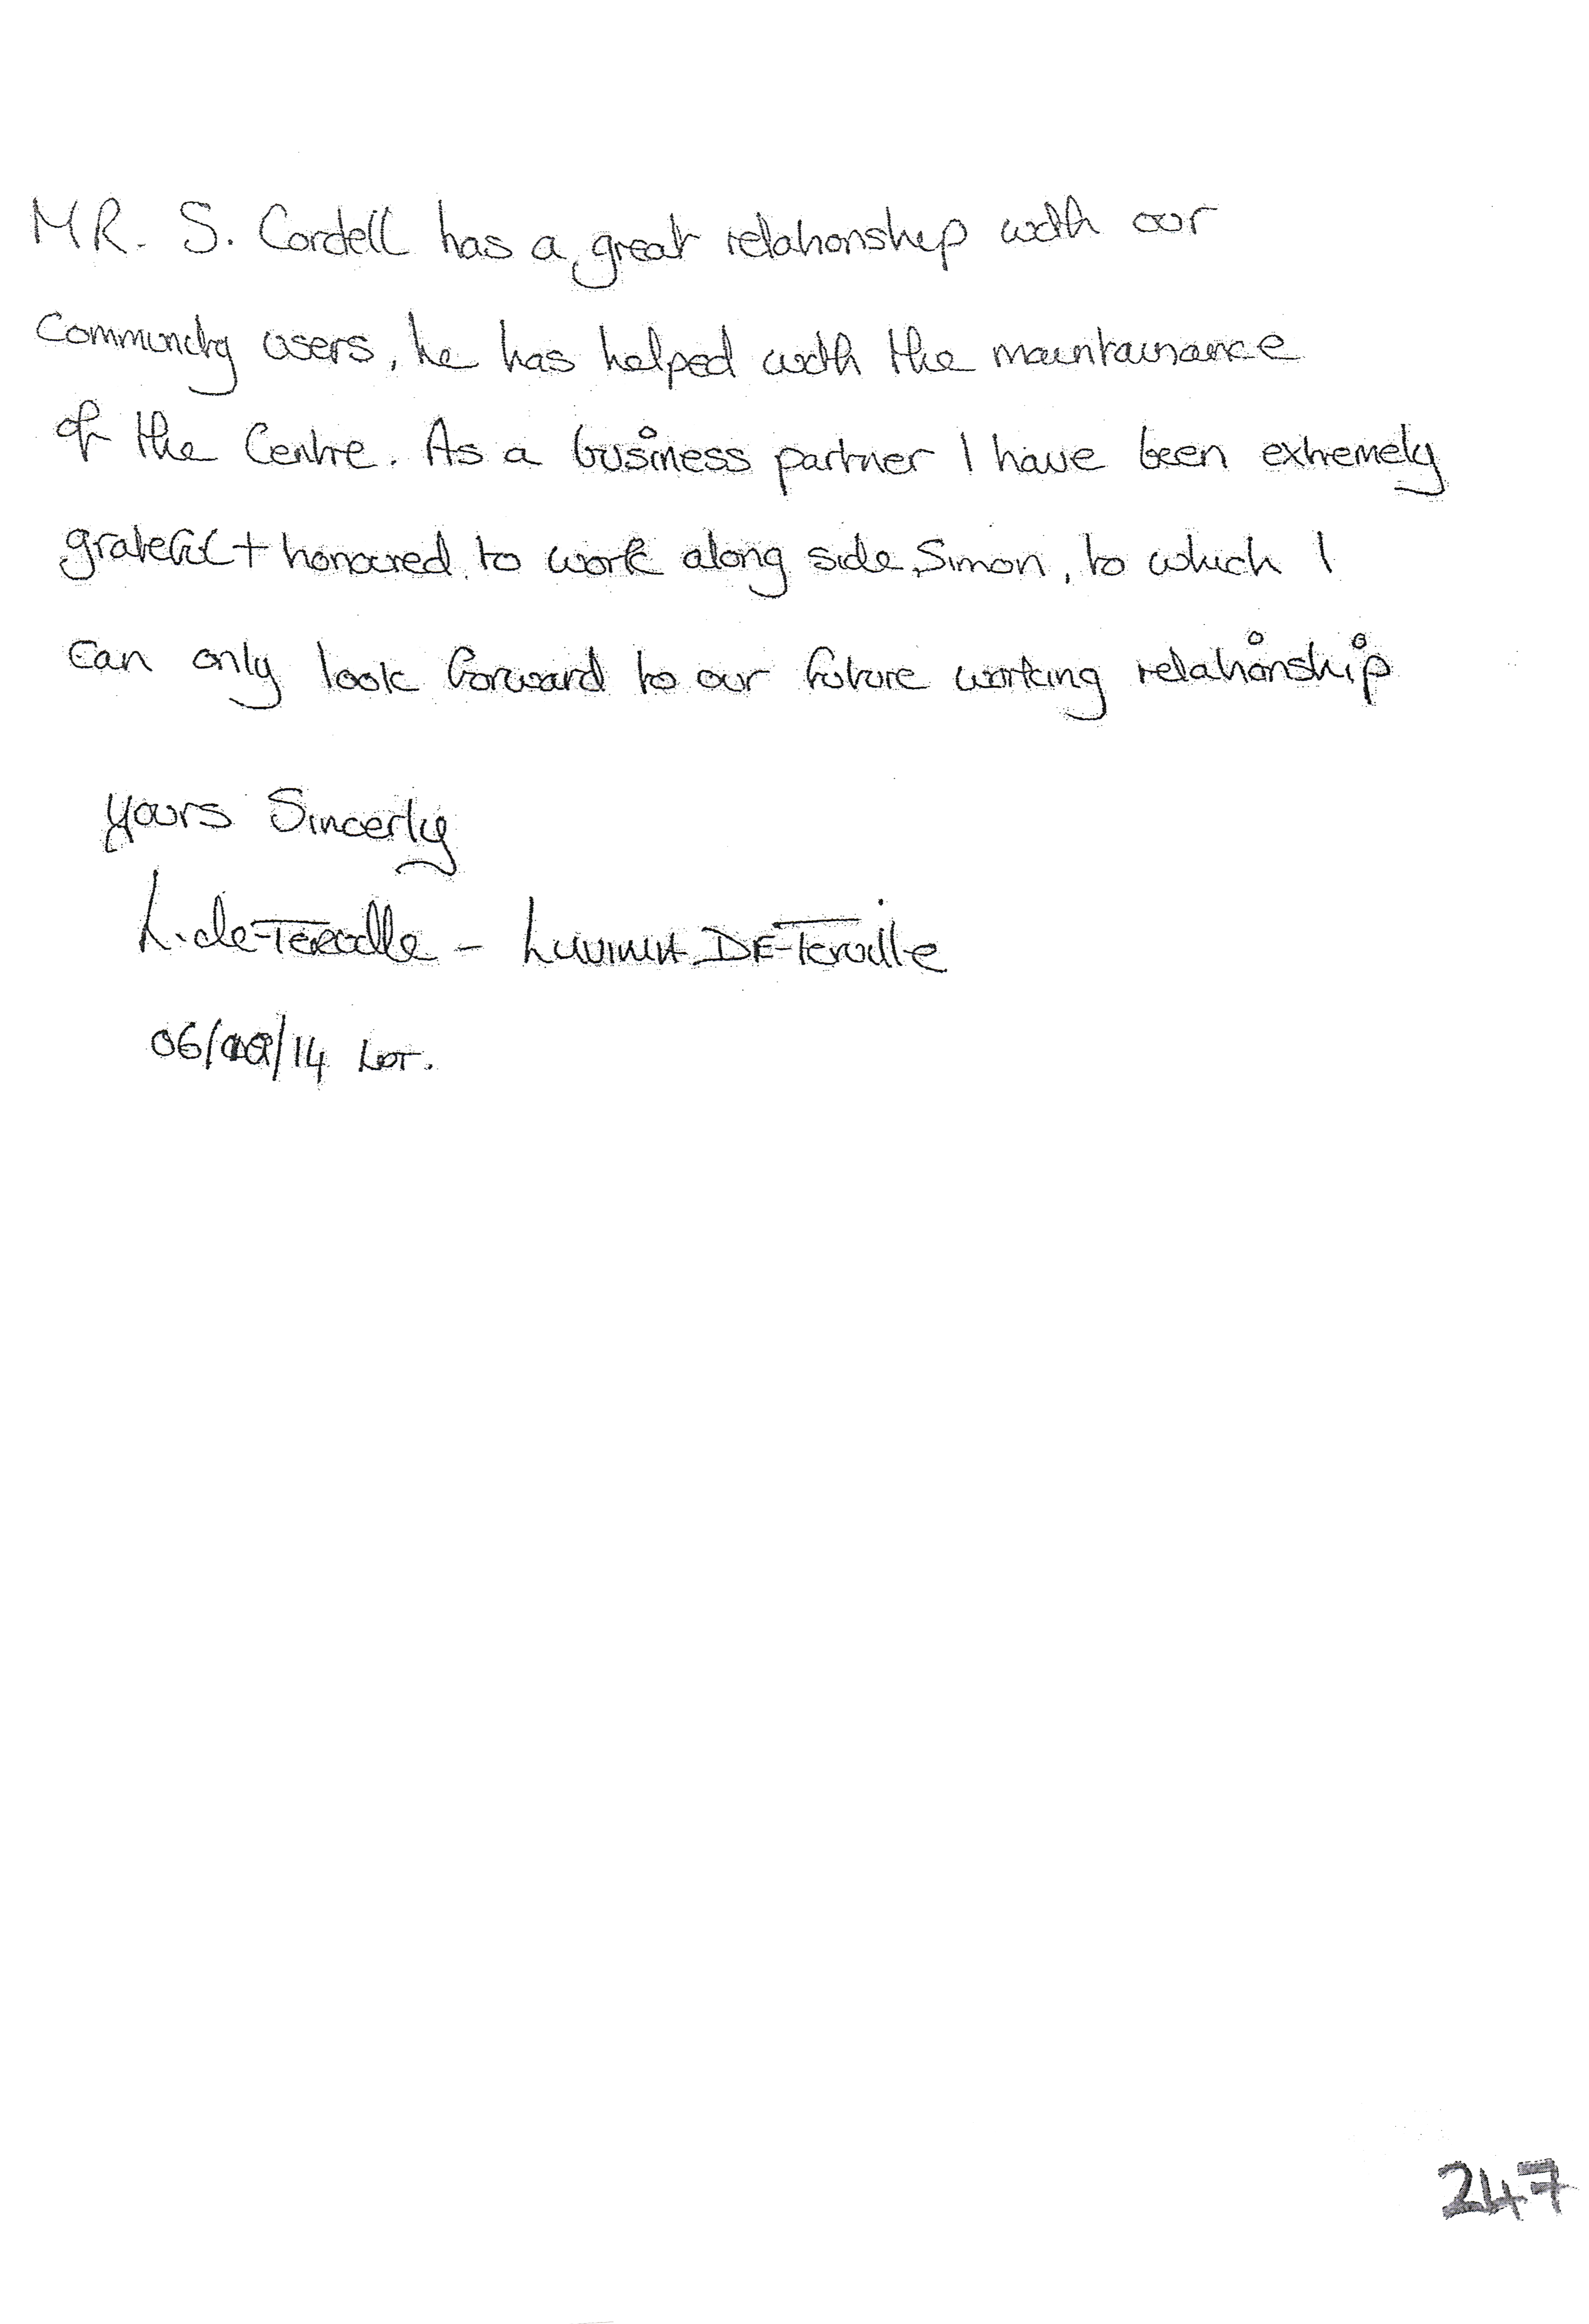 MR. S. Cordell has a great relationship with our
Community users, he has helped with the maintainance
of the Centre. As a business partner I have been extremely
grateful + honoured to work along side Simon, to which I
can only look forward to our future working relationship
yours Sincerly
L. de-Teroille - DE-Teroille
LDT.
247